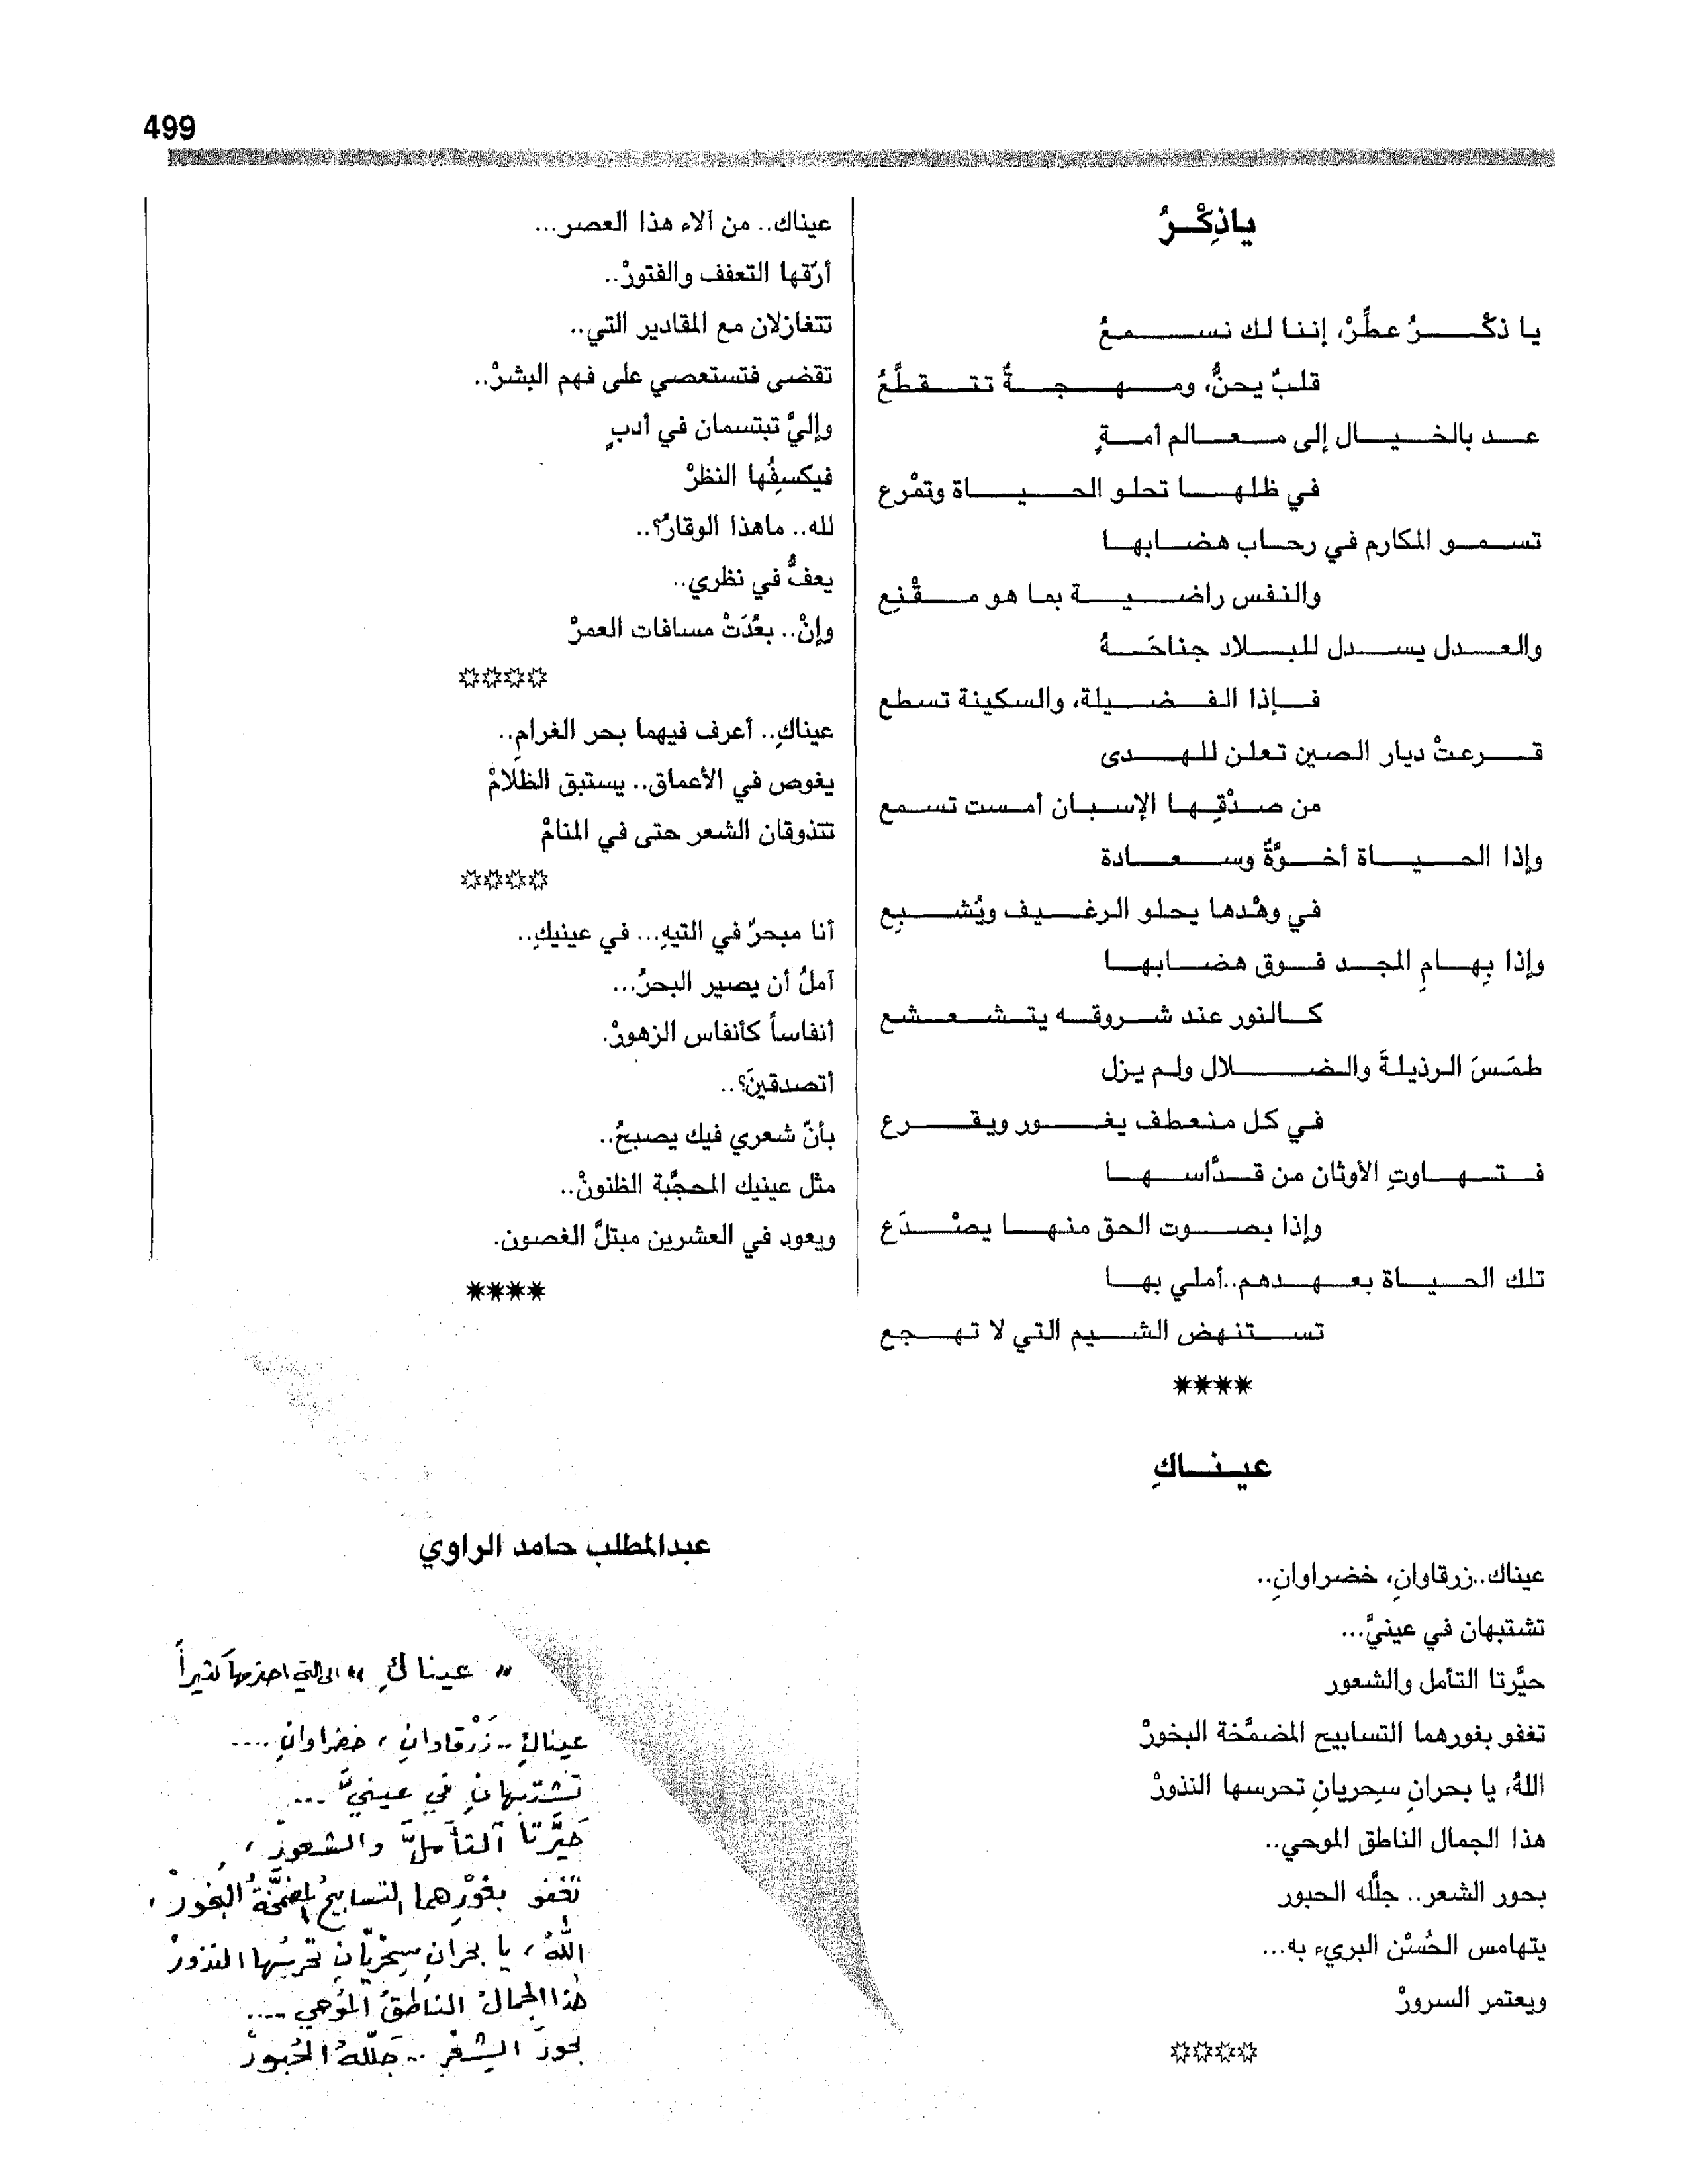 499
ياذِكْرُ
يا ذكْرُ عطِّرْ، إننا لك نسمعُ
قلبٌ يحنُّ، ومهجةٌ تتقطَّعُ
عد بالخيال إلى معالم أمةٍ
في ظلها تحلو الحياة وتمْرع
تسمو المكارم في رحاب هضابها
والنفس راضية بما هو مقْنِع
والعدل يسدل للبلاد جناحَهُ
فإذا الفضيلة، والسكينة تسطع
قرعتْ ديار الصين تعلن للهدى
من صدْقِها الإسبان أمست تسمع
وإذا الحياة أخوَّةٌ وسعادة
في وهْدها يحلو الرغيف ويُشبِع
وإذا بِهامِ المجد فوق هضابها
كالنور عند شروقه يتشعشع
طمَسَ الرذيلةَ والضلال ولم يزل
في كل منعطف يغور ويقرع
فتهاوتِ الأوثان من قدَّاسها
وإذا بصوت الحق منها يصْدَع
تلك الحياة بعهدهم..أملي بها
تستنهض الشيم التي لا تهجع
****
عيناكِ
عيناك..زرقاوانِ، خضراوانِ..
تشتبهان في عينيَّ...
حيَّرتا التأمل والشعور
تغفو بغورهما التسابيح المضمَّخة البخورْ
اللهُ، يا بحرانِ سِحريانِ تحرسها النذورْ
هذا الجمال الناطق الموحي..
بحور الشعر.. جلَّله الحبور
يتهامس الحُسْن البريء به...
ويعتمر السرورْ
****
عيناك.. من آلاء هذا العصر...
أرّقها التعفف والفتورْ..
تتغازلان مع المقادير التي..
تقضى فتستعصي على فهم البشرْ..
وإليَّ تبتسمان في أدبٍ
فيكسفُِها النظرْ
لله.. ماهذا الوقارُ؟..
يعفُّ في نظري..
وإنْ.. بعُدَتْ مسافات العمرْ
****
عيناكِ.. أعرف فيهما بحر الغرامِ..
يغوص في الأعماق.. يستبق الظلامْ
تتذوقان الشعر حتى في المنامْ
****
أنا مبحرٌ في التيهِ... في عينيكِ..
آملُ أن يصير البحرُ...
أنفاساً كأنفاس الزهورْ.
أتصدقينَ؟..
بأنّ شعري فيك يصبحُ..
مثل عينيك المحجَّبة الظنونْ..
ويعود في العشرين مبتلَّ الغصون.
****
عبدالمطلب حامد الراوي
« عيناكِ » الى التي احترمها كثيراً
عيناكِ .. زَرْقاوانِ ، خضراوانِ ....
تشتبهانِ في عينيَّ ...
حَيَّرتا آلتأملَّ والشعورْ ،
تغفو بغَوْرِهما التسابيحُ المضمَّخةُ البخورْ ،
اللهُ ، يا بحرانِ سِحْريّانِ تحرسُها النذورْ
هذا الجمالُ الناطقُ الموُحي ....
بحورَ الشِعْرِ .. جَلّلهُ الحُبورْ